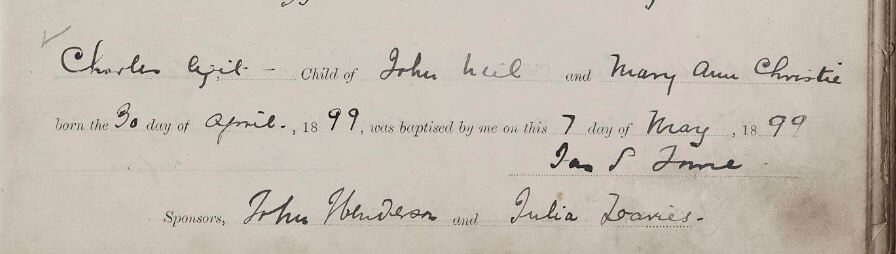 Charles Child of John Neil and Mary Ann Christie
born the 30 day of April., 1899, was baptised by me on this 7 day of May, 1899
Jas S
Sponsors, John Henderson and Julia